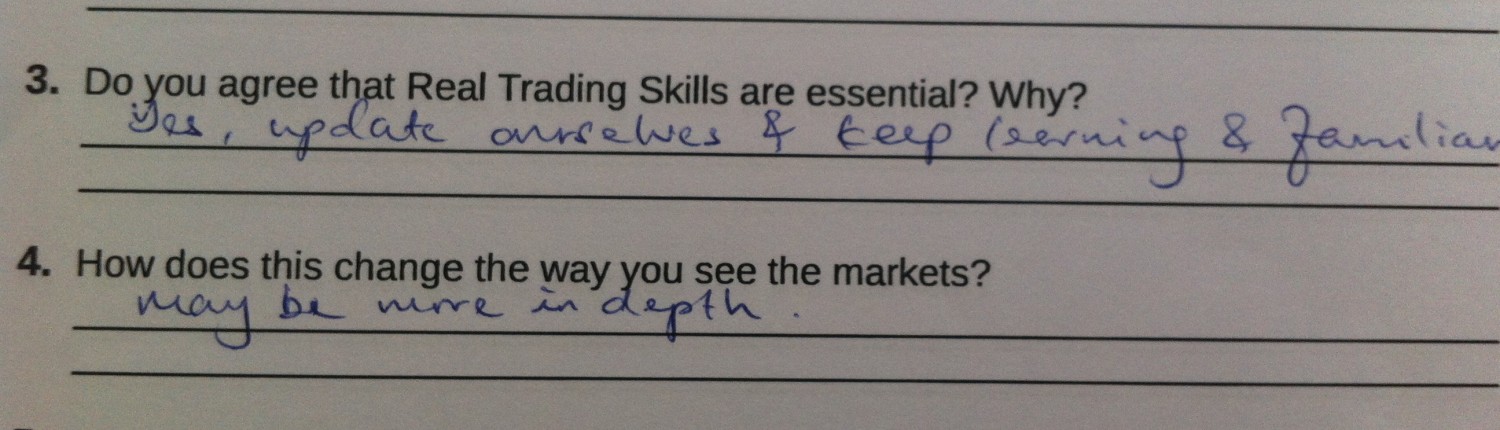 3. Do you agree that Real Trading Skills are essential? Why?
Yes, update ourselves & keep learning & familiar
4. How does this change the way you see the markets?
may be more in depth.